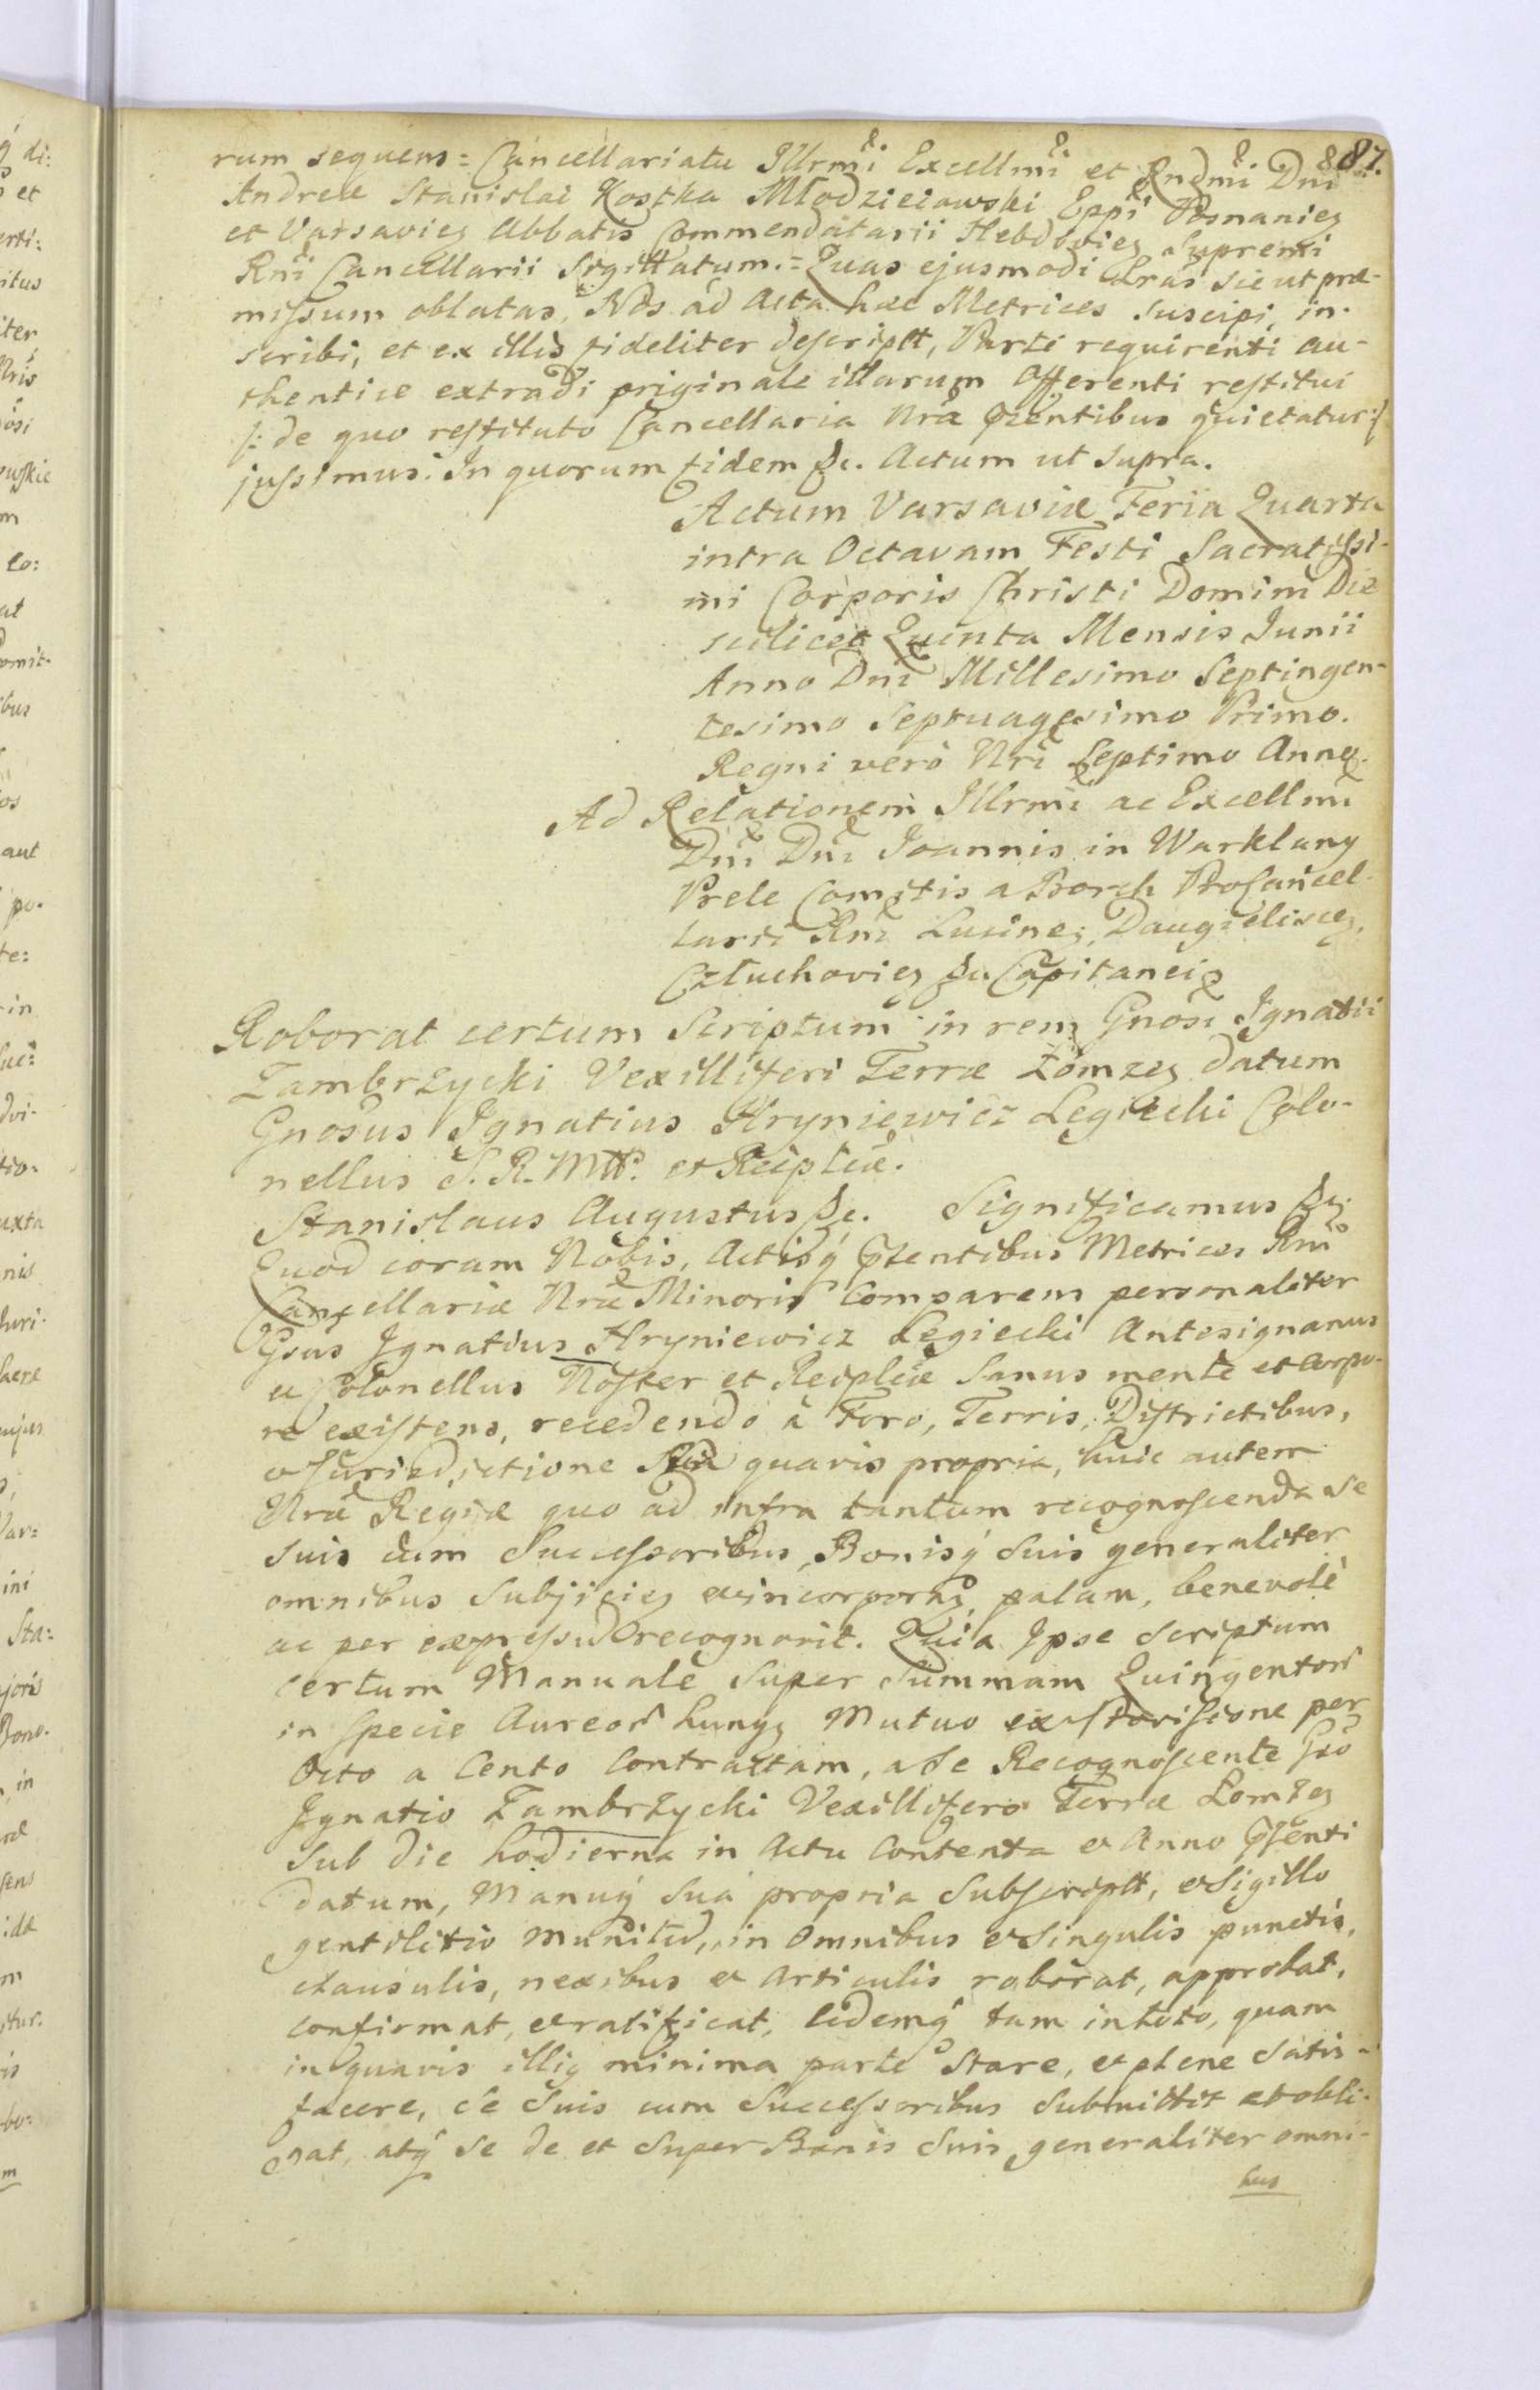 887.
rum sequens = Cancellariatu Illrmi Excellmi et Rndmi Dni
Andreæ Stanislai Kostka Młodzieiowski Eppi Posnanien
et Varsavien Abbatis Commendatarii Hebdovien Supremi
Rni Cancellarii Sigillatum. = Quas ejusmodi Lras sic ut præ-
missum oblatas, Nos ad Acta hæc Metrices suscipi, in-
scribi, et ex illis fideliter descriptt, Parti requirenti au-
thentice extradi originale illarum Offerenti restitui
/: de quo restituto Cancellaria Nra pzentibus quietatur :/
jussimus. In quorum fidem &c. Actum ut supra.
Actum Varsaviæ Feria Quarta
intra Octavam Festi Sacratissi-
mi Corporis Christi Domini Die
scilicet Quinta Mensis Junii
Anno Dni Millesimo Septingen-
tesimo Septuagesimo Primo.
Regni vero Nri Septimo Anno.
Ad Relationem Illrmi ac Excellmi
Dni Dni Joannis in Warklany
Prele Comitis a Borch ProCancel-
larii Rni Lucinen, Daugielisen,
Człuchovien &c Capitanei
Roborat certum Scriptum in rem Gnosi Ignatii
Zambrzycki Vexilliferi Terræ Łomzen datum
Gnosus Ignatius Hryniewicz Legiecki Colo-
nellus S. R. Mtt. et Reiplicæ.
Stanislaus Augustus &c. Significamus &c.
Quod coram Nobis, Actisq pzentibus Metrices Rni
Cancellariæ Nræ Minoris Comparens personaliter
Gsus Ignatius Hryniewicz Legiecki Antesignanus
et Colonellus Noster et Reiplicæ Sanus mente et Corpo-
re existens, recedendo à Foro, Terris, Districtibus,
et Jurisdictione Sua quavis propria, huic autem
Nræ Regiæ quo ad infra tantum recognoscenda se
suis cum Successoribus, Bonisq suis generaliter
omnibus Subjicien et incorporan, palam, benevolè
ac per expressum recognovit. Quia Ipse Scriptum
certum Manuale Super Summam Quingentor
in Specie Aureor hung Mutuo ex per
Octo a Cento Contractam, a Se Recognoscente Gso
Ignatio Zambrzycki Vexillifero Terræ Lomzen
Sub die hodierna in Actu Contenta et Anno pzenti
datum, Manuq Sua propria Subscriptt, et Sigillo
gentilitio munitum, in Omnibus et Singulis punctis,
clausulis, nexibus et Articulis roborat, approbat,
confirmat, et ratificat, eidemq tam in toto, quam
in quavis illius minima parte Stare, et plene Satis-
facere, se Suis cum Successoribus Submittit et obli-
gat, atq se de et Super Bonis Suis generaliter omni-
bus